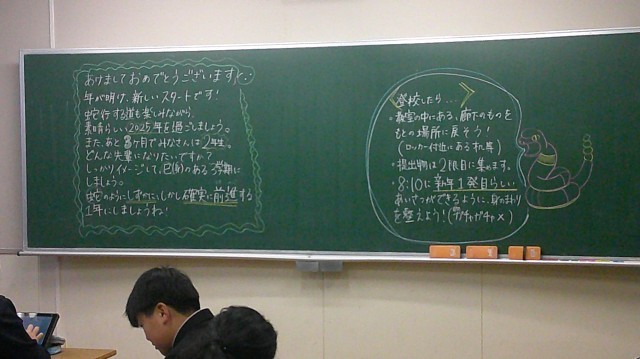 あけましておめでとうございます
年が明け、新しいスタートです！
蛇行する道も楽しみながら、
素晴らしい2025年を過ごしましょう。
また、あと3ヶ月でみなさんは2年生。
どんな先輩になりたいですか？
しっかりイメージして、巳(み)のある3学期に
しましょう。
蛇のようにしずかに、しかし確実に前進する
1年にしましょうね！
登校したら…
・教室の中にある、廊下のものを
もとの場所に戻そう！
(ロッカー付近にあるよ)
・提出物は2限目に集めます。
・8:10に新年1発目らしい
あいさつができるように、身のまわり
を整えよう！(ガチャガチャ×)